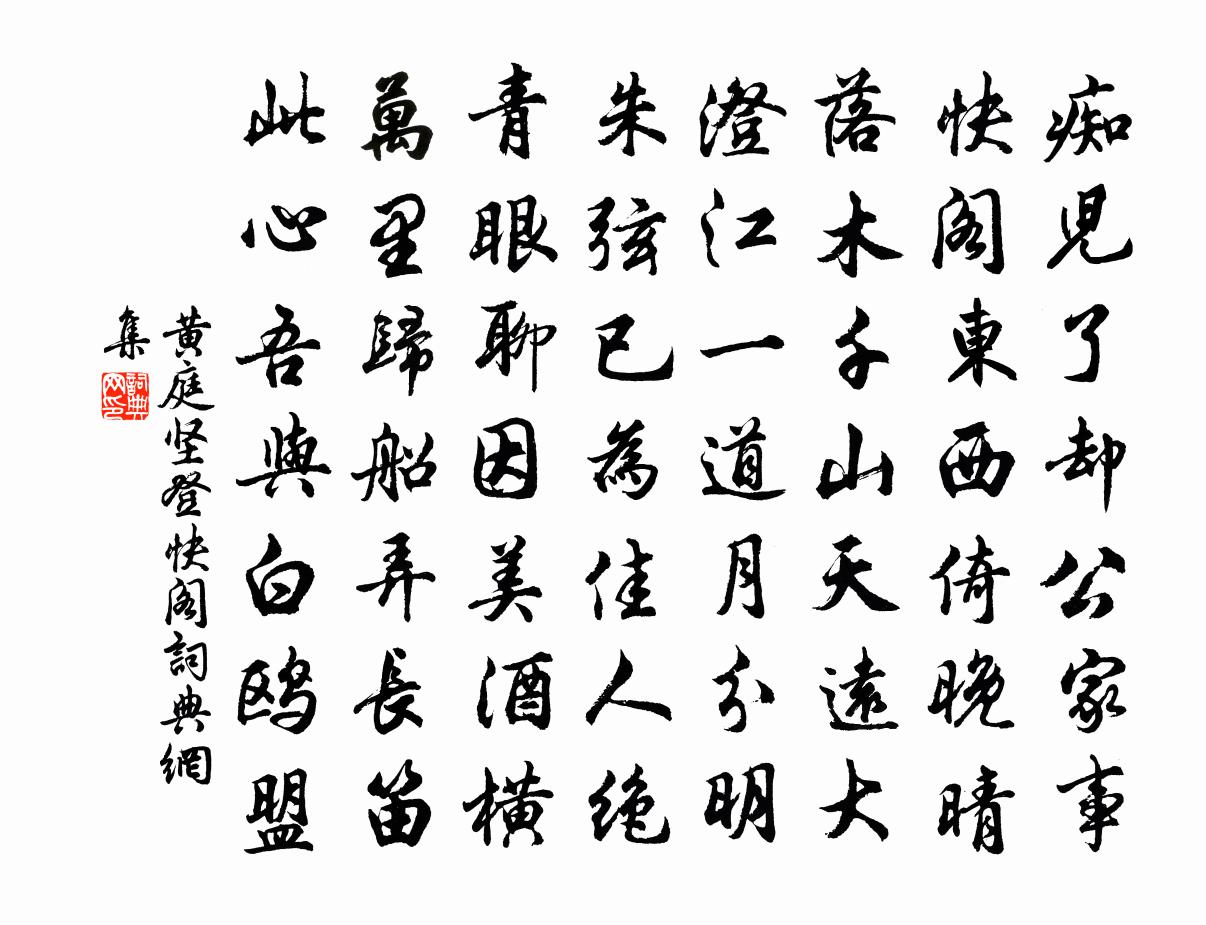 痴児了却公家事
快阁東西倚晚晴
落木千山天遠大
澄江一道月分明
朱弦已為佳人绝
青眼聊因美酒横
萬里歸船弄長笛
此心吾與白鸥盟
黄庭坚登快阁詞典網
集
詞典
网印